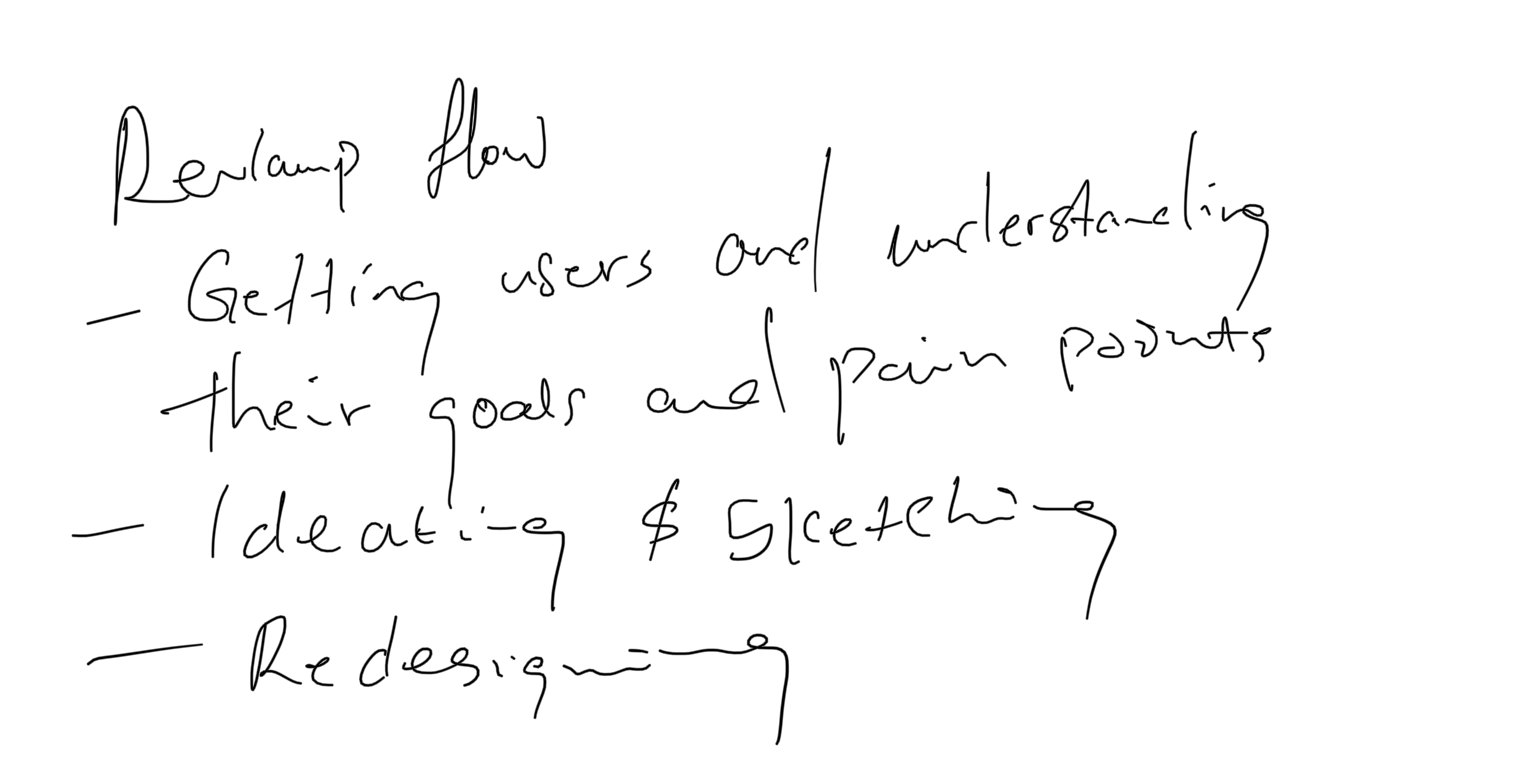 Revamp flow
- Getting users and understanding
their goals and pain points
- Ideating & Sketching
- Redesigning